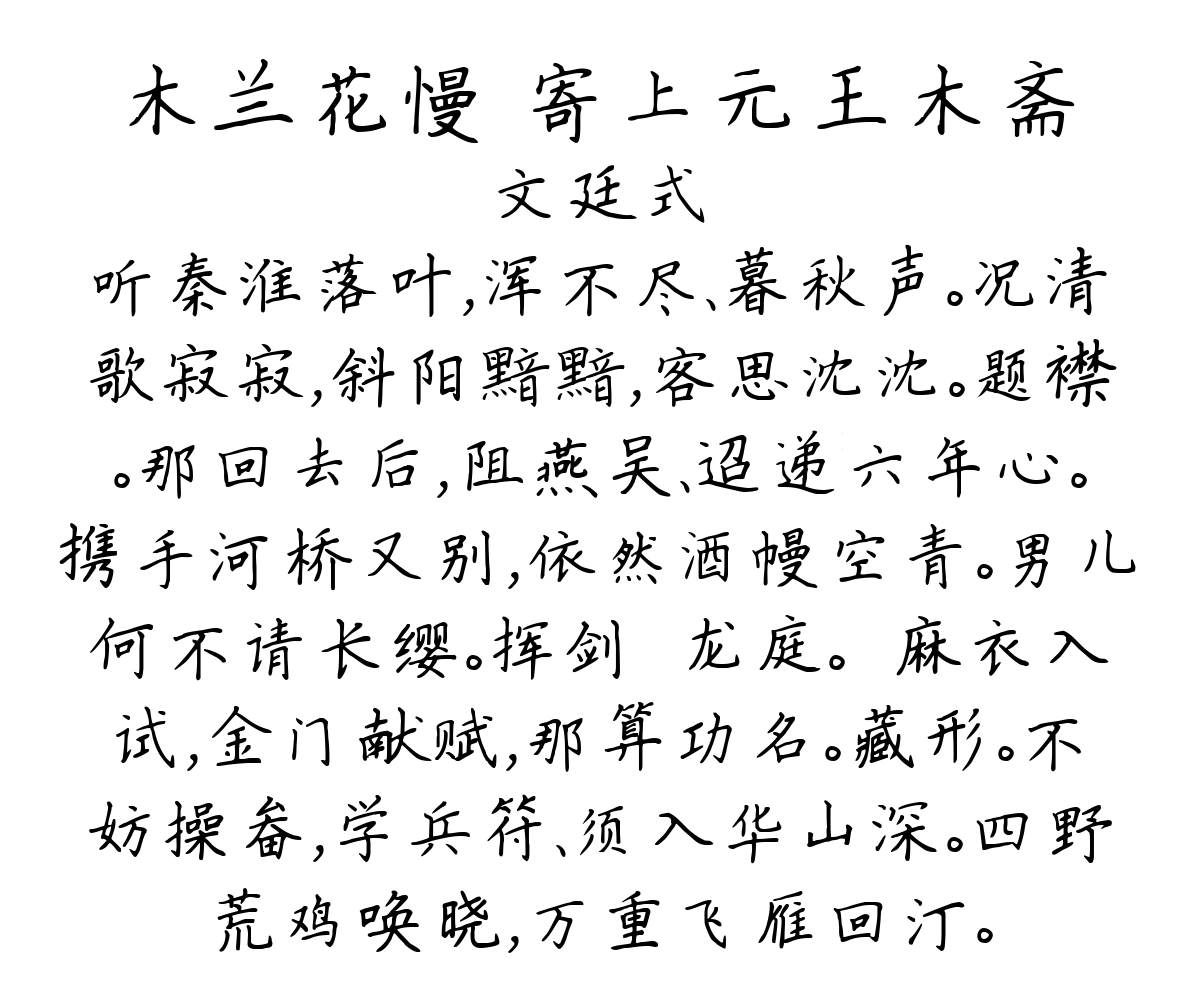 木兰花慢 寄上元王木斋
文廷式
听秦淮落叶,浑不尽、暮秋声。况清
歌寂寂,斜阳黯黯,客思沈沈。题襟
。那回去后,阻燕吴、迢递六年心。
携手河桥又别,依然酒幔空青。男儿
何不请长缨。挥剑 龙庭。 麻衣入
试,金门献赋,那算功名。藏形。不
妨操畚,学兵符、须入华山深。四野
荒鸡唤晓,万重飞雁回汀。